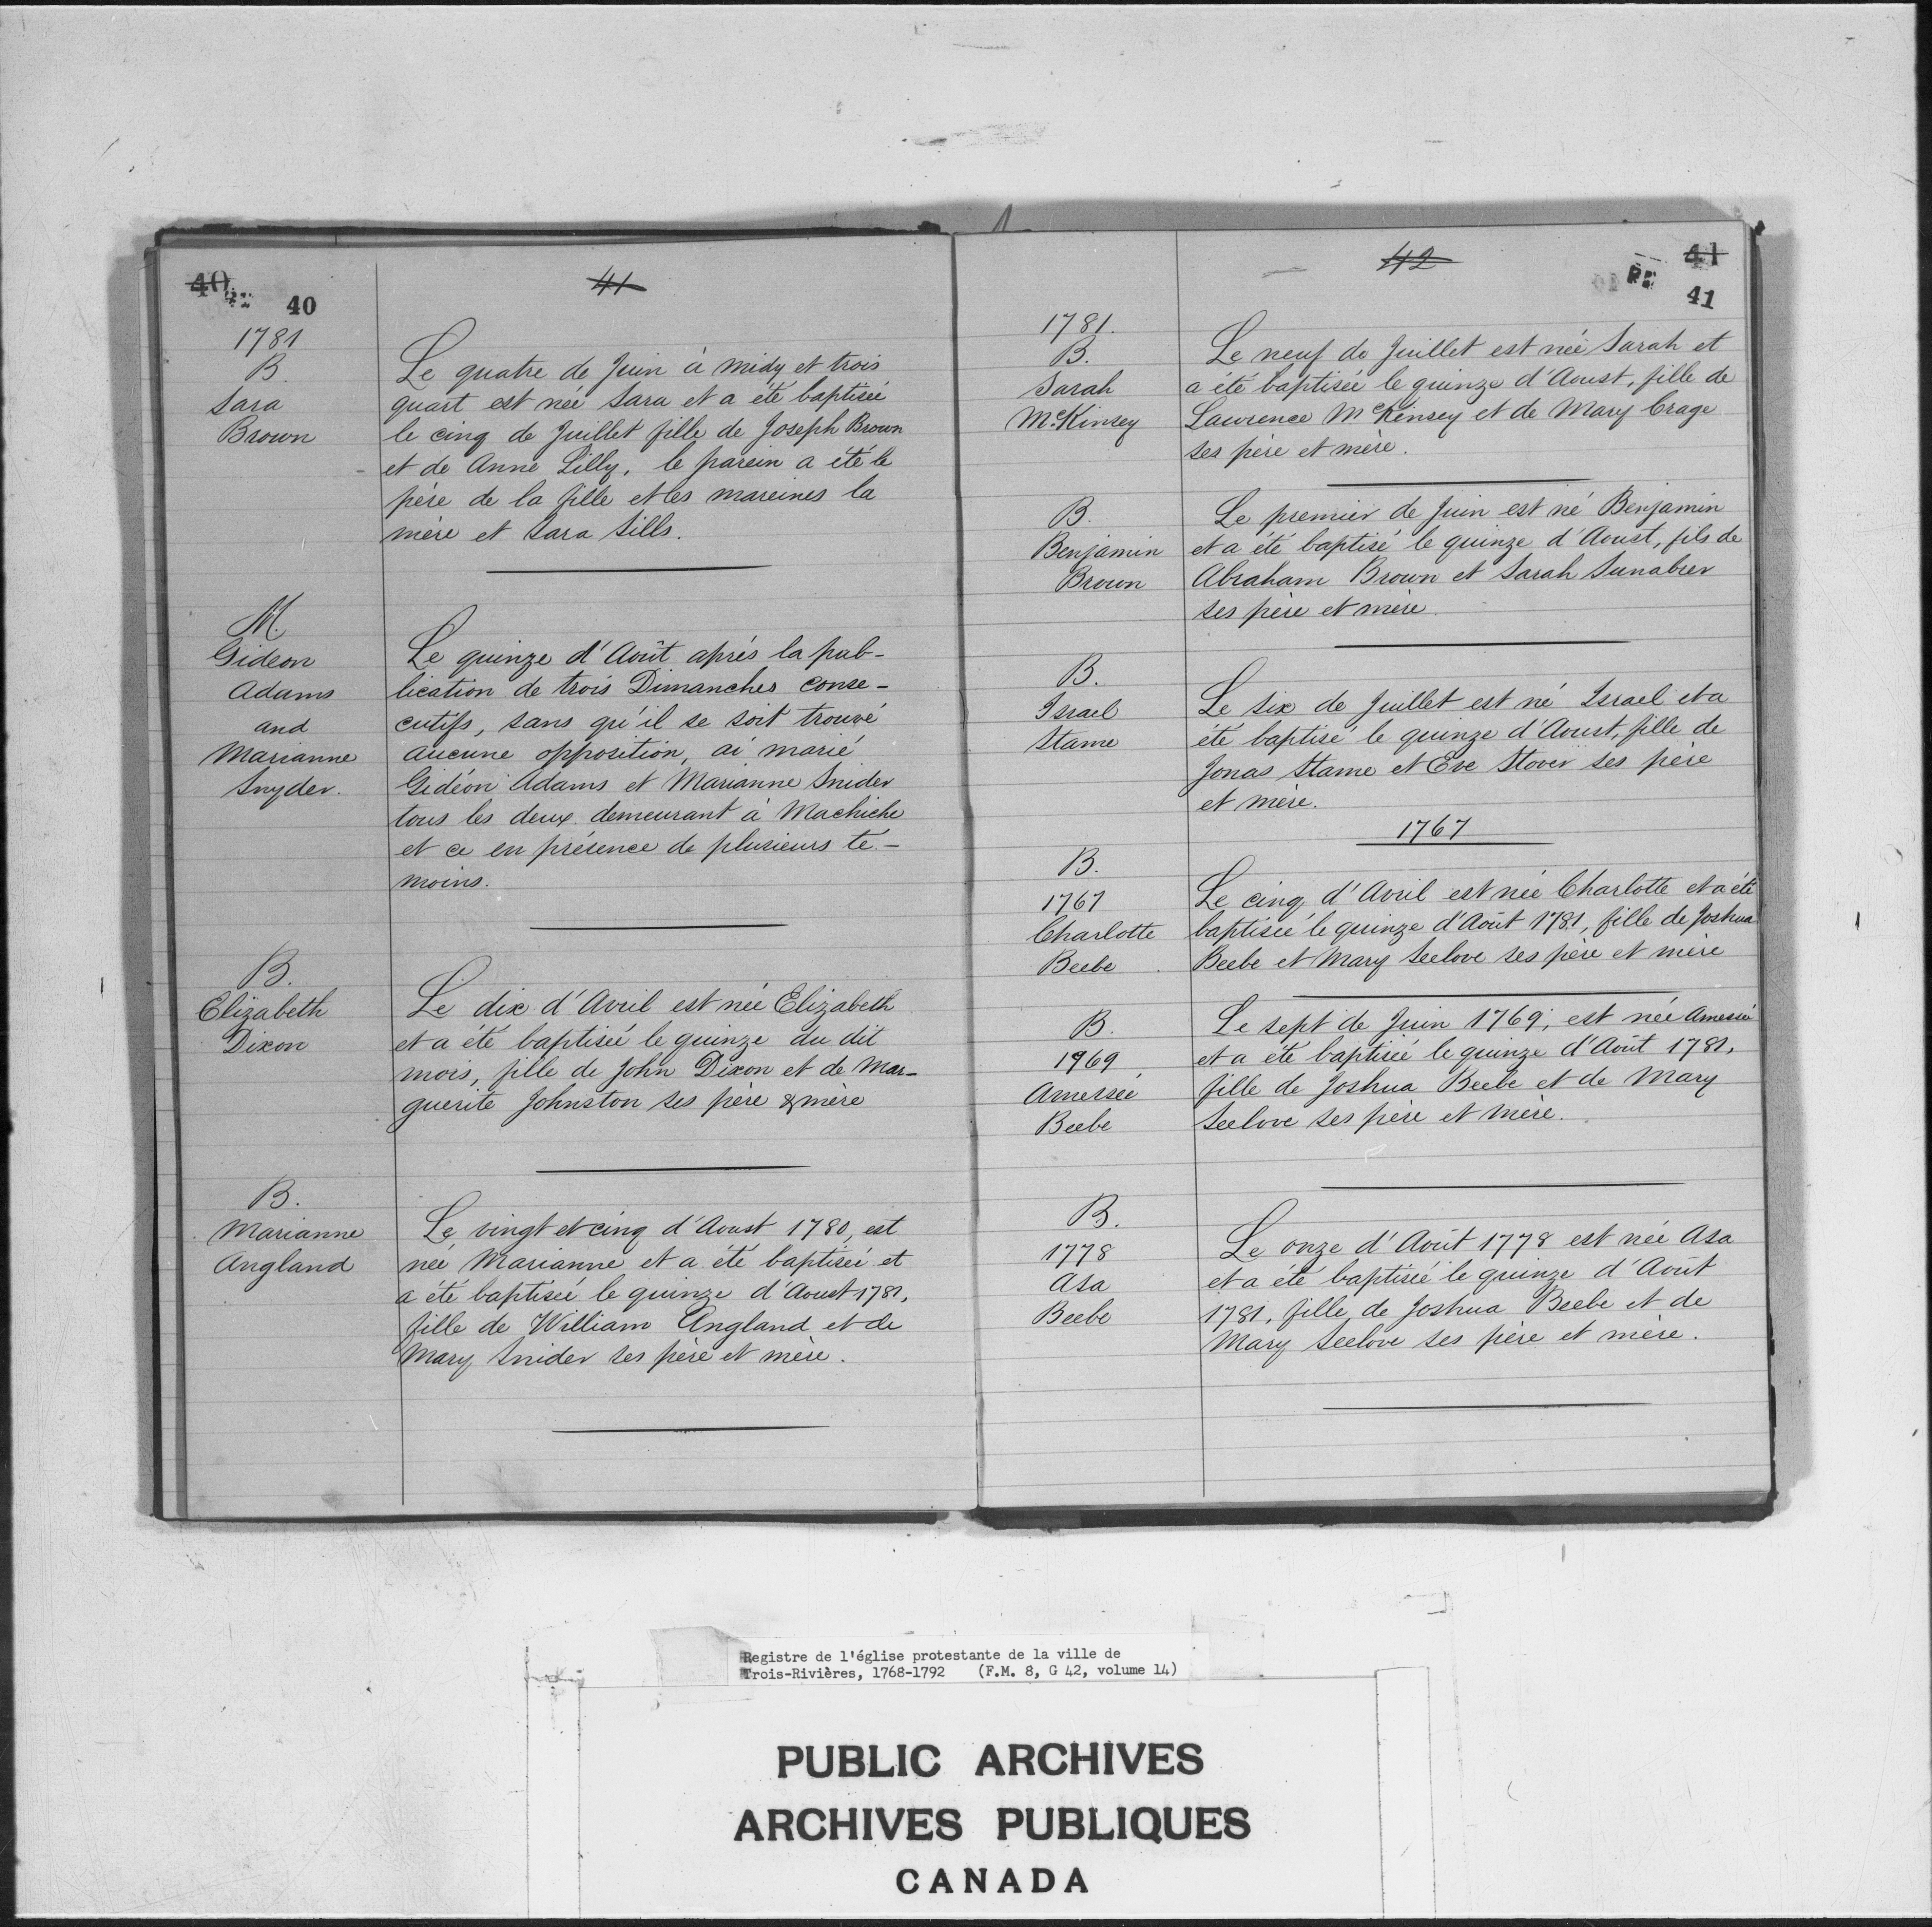 40
40
41
1781
B.
Sara
Brown
Le quatre de Juin à midy et trois
quart est née Sara et a été baptisée
le cinq de Juillet fille de Joseph Brown
et de Anne Lilly, le parein a été le
père de la fille et les mareines la
mère et Sara Sills.
M.
Gideon
Adams
and
Marianne
Snyder.
Le quinze d'Août aprés la pub-
lication de trois Dimanches conse-
cutifs, sans qu'il se soit trouvé
aucune opposition, ai marié
Gidéon Adams et Marianne Snider
tous les deux demeurant à Machiche
et ce en présence de plusieurs te-
moins.
B.
Elizabeth
Dixon
Le dix d'Avril est née Elizabeth
et a été baptisée le quinze du dit
mois, fille de John Dixon et de Mar-
guerite Johnston ses père & mère
B.
Marianne
Angland
Le vingt et cinq d'Aoust 1780, est
née Marianne et a été baptisée et
a été baptisée le quinze d'Aoust 1781,
fille de William Angland et de
Mary Snider ses père et mère.
42
41
41
1781.
B.
Sarah
McKinsey
Le neuf de Juillet est née Sarah et
a été baptisée le quinze d'Aoust, fille de
Lawrence McKinsey et de Mary Crage
ses père et mère.
B.
Benjamin
Brown
Le premier de Juin est né Benjamin
et a été baptisé le quinze d'Aoust, fils de
Abraham Brown et Sarah Sunabrer
ses père et mère.
B.
Israel
Stame
Le six de Juillet est né Israel et a
été baptisé le quinze d'Aoust, fille de
Jonas Stame et Eve Stover ses père
et mère.
1767
B.
1767
Charlotte
Beebe
Le cinq d'Avril est née Charlotte et a été
baptisée le quinze d'Août 1781, fille de Joshua
Beebe et Mary Seelove ses père et mère
B.
1969
Amersée
Beebe
Le sept de Juin 1769, est née Amersée
et a été baptisée le quinze d'Août 1781,
fille de Joshua Beebe et de Mary
Seelove ses père et mère.
B.
1778
Asa
Beebe
Le onze d'Août 1778 est née Asa
et a été baptisée le quinze d'Août
1781, fille de Joshua Beebe et de
Mary Seelove ses père et mère.
Registre de l'église protestante de la ville de
Trois-Rivières, 1768-1792 (F.M. 8, G 42, volume 14)
PUBLIC ARCHIVES
ARCHIVES PUBLIQUES
CANADA